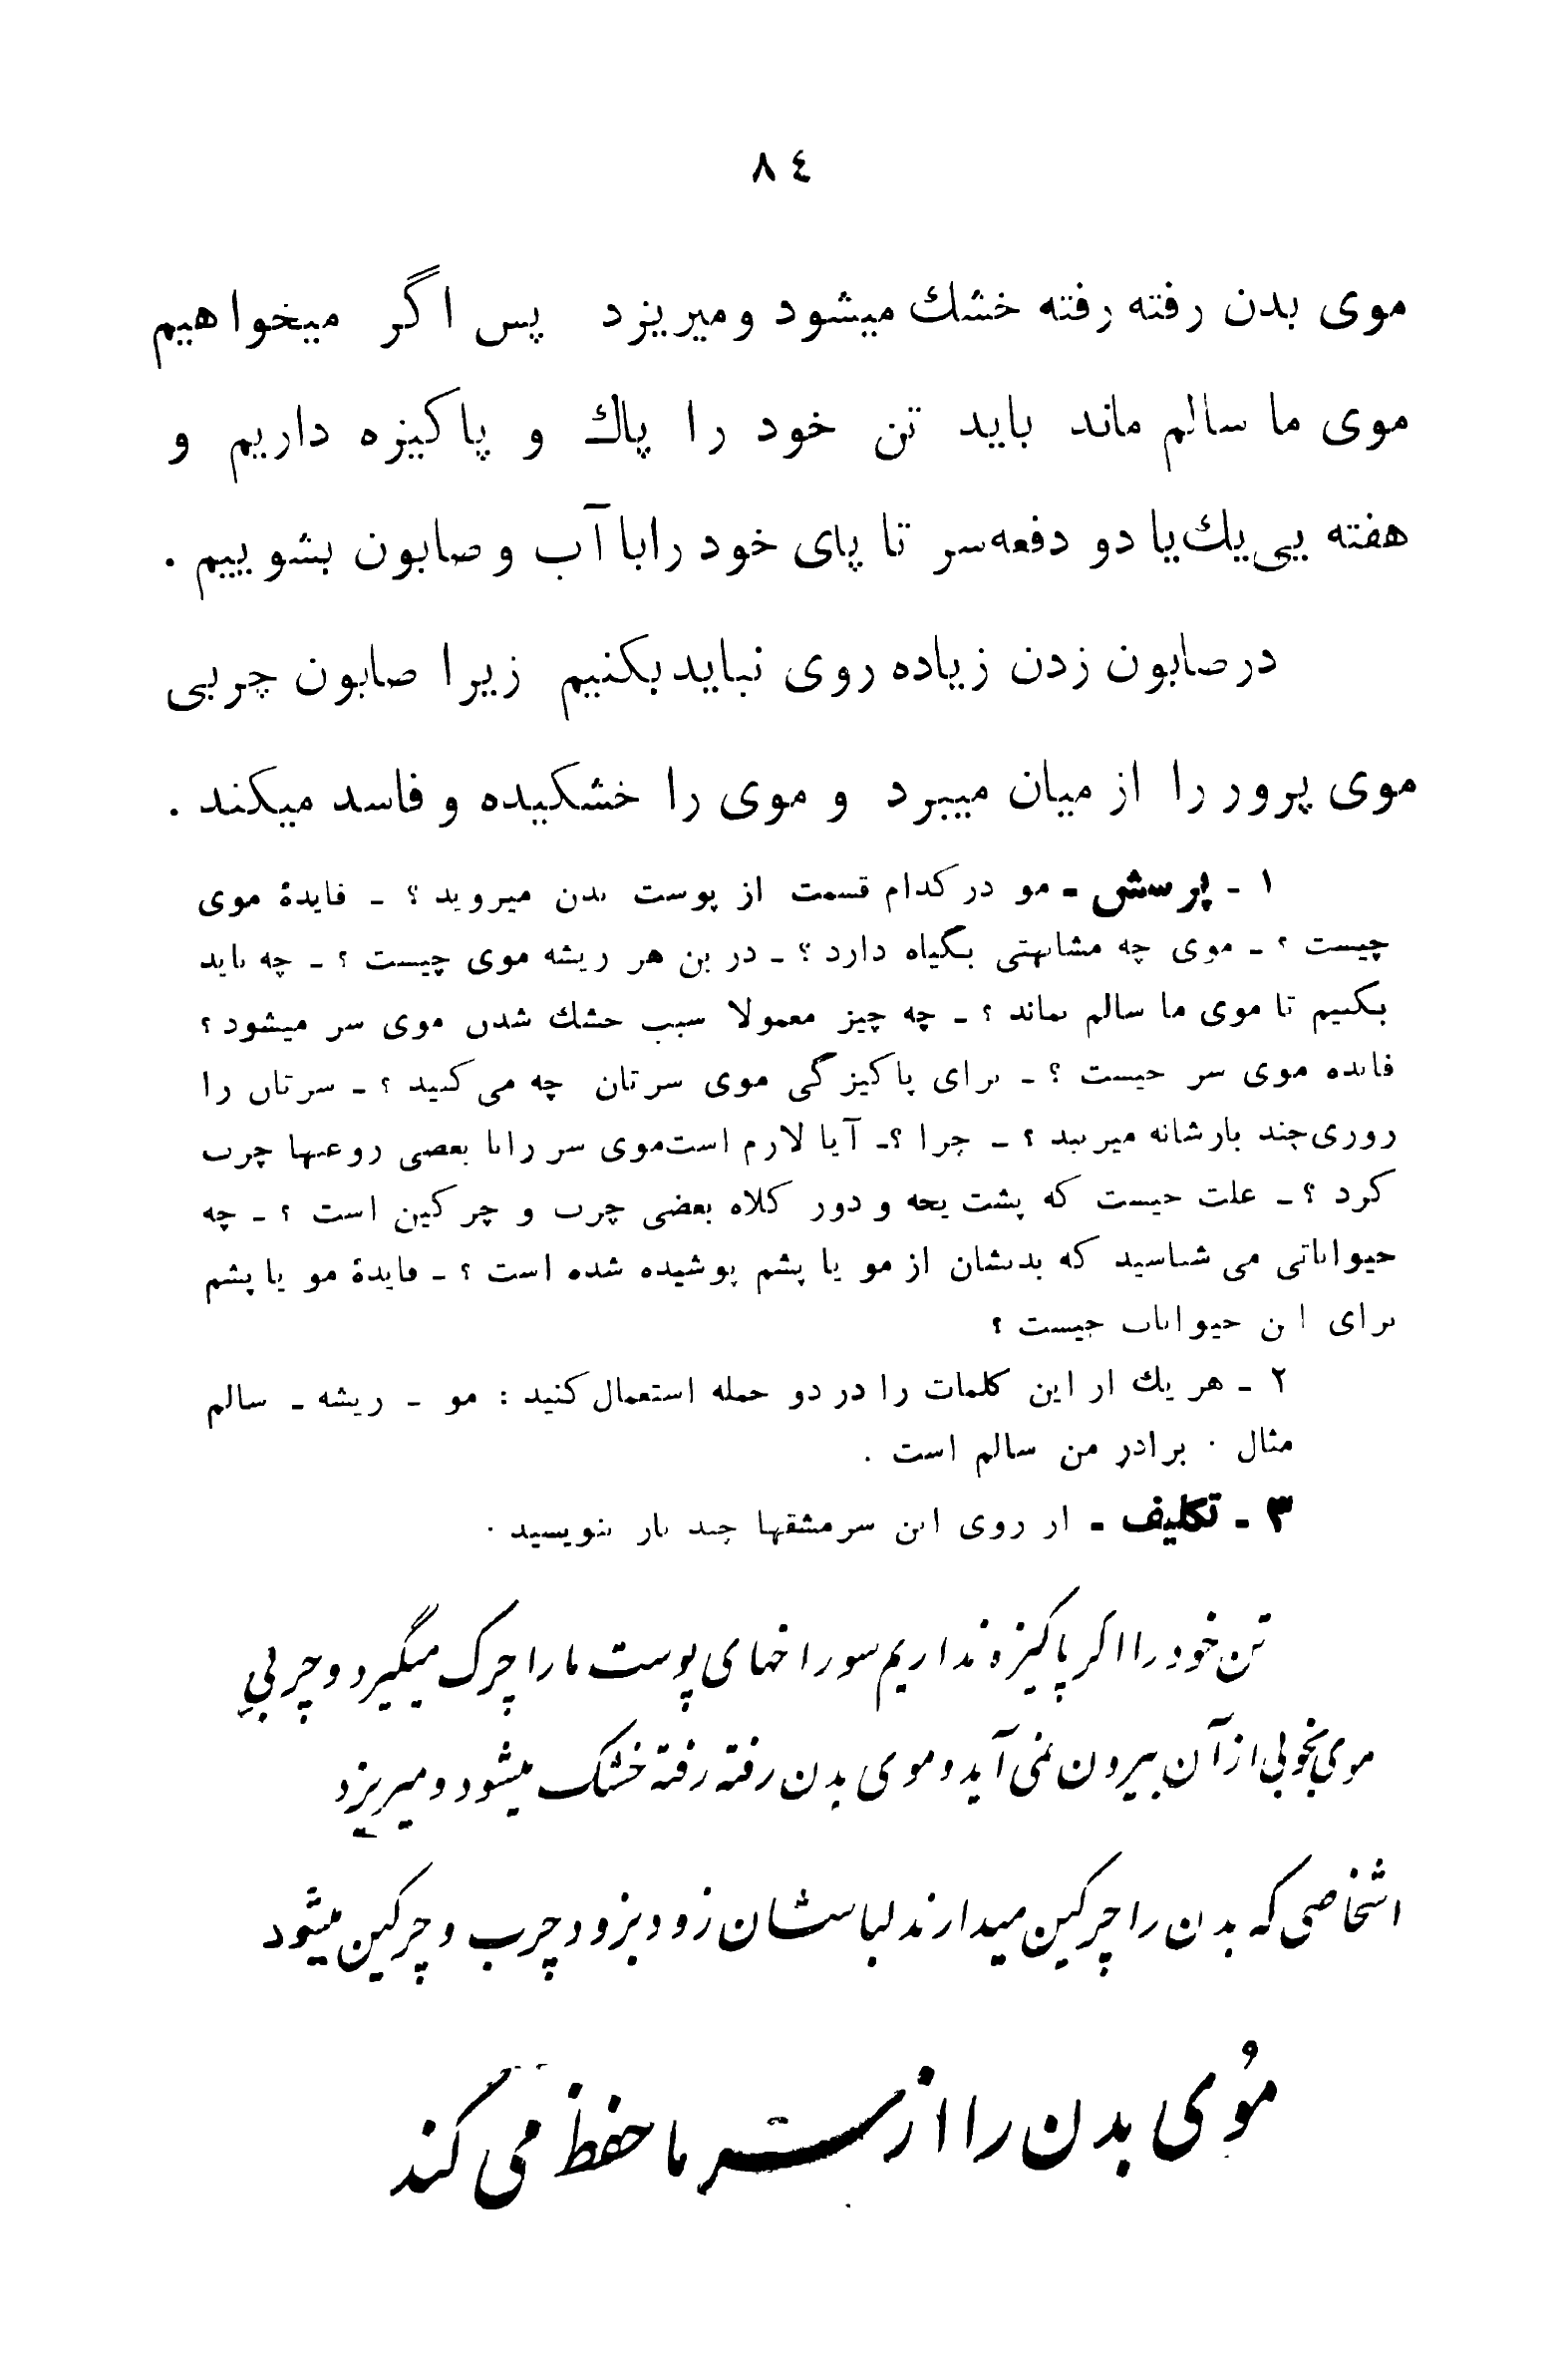 ٨٤
موی بدن رفته رفته خشك میشود و میریزد پس اگر میخواهیم
موی ما سالم ماند باید تن خود را پاك و پاکیزه داریم و
هفته یی یك یا دو دفعه سر تا پای خود را با آب و صابون بشوییم .
در صابون زدن زیاده روی نباید بکنیم زیرا صابون چربی
موی پرور را از میان میبرد و موی را خشکیده و فاسد میکند .
١ ـ پرسش ـ مو در کدام قسمت از پوست بدن میروید ؟ ـ فایدهٔ موی
چیست ؟ ـ موی چه مشابهتی بگیاه دارد ؟ ـ در بن هر ریشه موی چیست ؟ ـ چه باید
بکنیم تا موی ما سالم بماند ؟ ـ چه چیز معمولا سبب خشك شدن موی سر میشود ؟
فایده موی سر چیست ؟ ـ برای پاکیزگی موی سرتان چه می کنید ؟ ـ سرتان را
روزی چند بار شانه میزنید ؟ ـ چرا ؟ـ آیا لازم است موی سر را با بعضی روغنها چرب
کرد ؟ ـ علت چیست که پشت یخه و دور کلاه بعضی چرب و چرکین است ؟ ـ چه
حیواناتی می شناسید که بدنشان از مو یا پشم پوشیده شده است ؟ ـ فایدهٔ مو یا پشم
برای این حیوانات چیست ؟
٢ ـ هر یك از این کلمات را در دو جمله استعمال کنید : مو ـ ریشه ـ سالم
مثال . برادر من سالم است .
٣ ـ تکلیف ـ از روی این سرمشقها چند بار بنویسید .
تن خود را اگر پاکیزه نداریم سوراخهای پوست ما را چرک میگیرد و چربی
موی بخوبی از آن بیرون نمی آید و موی بدن رفته رفته خشک میشود و میریزد
اشخاصی که بدن را چرکین میدارند لباسشان زود بزود چرب و چرکین میشود
مُوی بدن را از سرما حفظ می کند